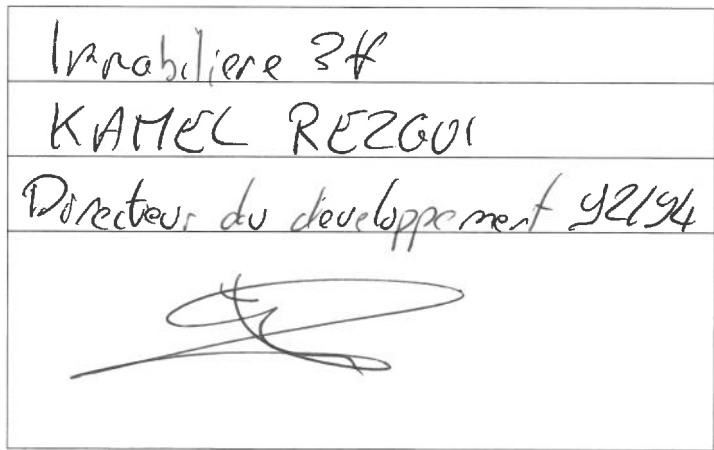 Immobiliere 3F
KAMEL REZGUI
Directeur du developpement 92/94